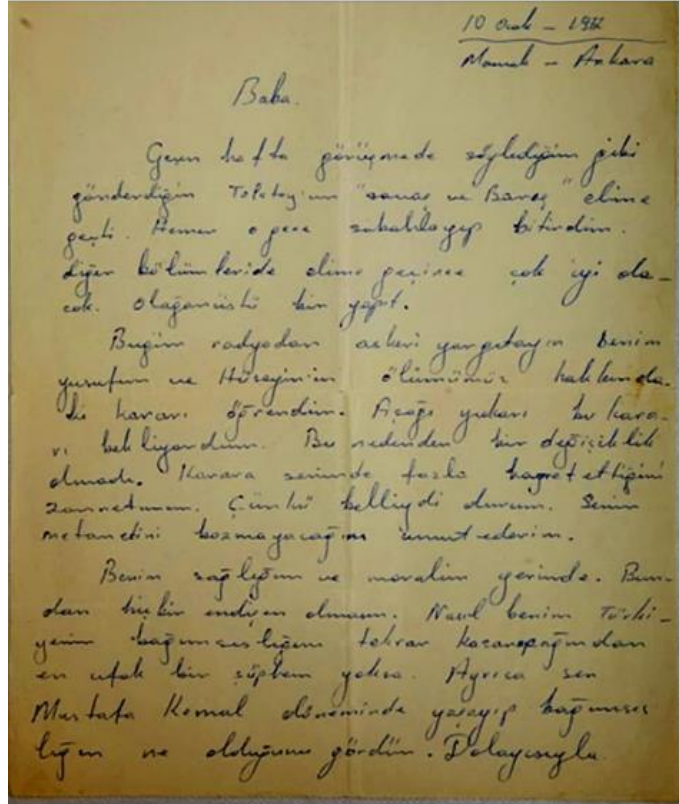 10 Ocak – 1972
Mamak – Ankara
Baba.
Geçen hafta görüşmede söylediğim gibi
gönderdiğin Tolstoy'un "savaş ve Barış" elime
geçti. Hemen o gece sabahlayıp bitirdim.
diğer bölümleride elime geçince çok iyi ola-
cak. Olağanüstü bir yapıt.
Bugün radyodan askeri yargıtayın benim
yusufun ve Hüseyin'in ölümümüz hakkında-
ki kararı öğrendim. Aşağı yukarı bu kara-
rı bekliyordum. Bu nedenden bir değişiklik
olmadı. Karara seninde fazla hayret ettiğini
zannetmem. Çünkü belliydi durum. Senin
metanetini bozmayacağını ümut ederim.
Benim sağlığım ve moralim yerinde. Bun-
dan hiçbir endişen olmasın. Nasıl benim Türki-
yenin bağımsızlığını tekrar kazanacağından
en ufak bir şüphem yoksa. Ayrıca sen
Mustafa Kemal döneminde yaşayıp bağımsız
lığın ne olduğunu gördün. Dolayısıyla